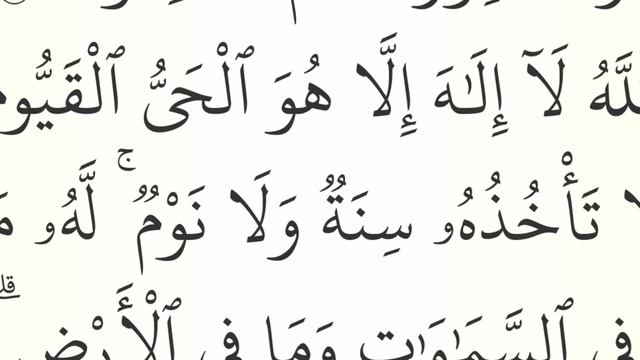 ٱللَّهُ لَآ إِلَـٰهَ إِلَّا هُوَ ٱلْحَىُّ ٱلْقَيُّومُ
لَا تَأْخُذُهُۥ سِنَةٌ وَلَا نَوْمٌ ۚ لَّهُۥ مَا
فِى ٱلسَّمَـٰوَٰتِ وَمَا فِى ٱلْأَرْضِ ۗ